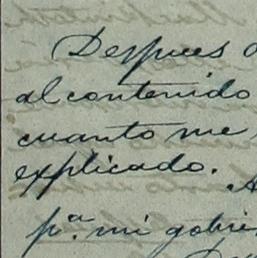 Despues
al contenido
cuanto me
explicado.
pª. mi